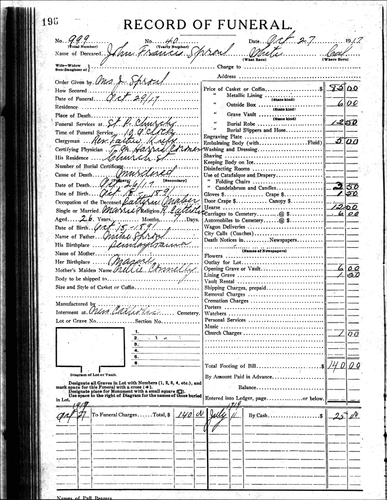 196
RECORD OF FUNERAL.
No. 999 No. 40 Date Oct. 27 1917
(Total Number) (Yearly Number)
Name of Deceased John Francis Sproul White
(What Race) (Where Born)
Wife—Widow
Son—Daughter of Charge to
Address
Order Given by Mrs J. Sproul
How Secured
Date of Funeral Oct 29/17
Residence
Place of Death
Funeral Services at St P. Church
Time of Funeral Service 10 o'clock
Clergyman Rev. Father
Certifying Physician Harris Coroner
His Residence Church St
Number of Burial Certificate
Cause of Death Murdered
Date of Death Oct 26/17
Date of Birth Oct 15-1891
Occupation of the Deceased
Single or Married Married Religion Catholic
Aged 26 Years, Months, Days
Date of Birth Oct-15-1891
Name of Father Miles Sproul
His Birthplace Pennsylvania
Name of Mother
Her Birthplace
Mother's Maiden Name Nellie Connelly
Body to be shipped to
Size and Style of Casket or Coffin
Manufactured by
Interment at New Cemetery
Lot or Grave No. Section No.
1
2
3
4
Diagram of Lot or Vault.
Designate all Graves in Lot with Numbers (1, 2, 3, 4, etc.), and
mark space for this Funeral with a cross
Designate place for Monument with a small square
Use space to the right of Diagram for the names of those buried
in Lot.
Price of Casket or Coffin $ 85 00
Metallic Lining
(State kind)
Outside Box 6 00
(State kind)
Grave Vault
(State kind)
Burial Robe 12 50
(State kind)
Burial Slippers and Hose
Engraving Plate
Embalming Body (with Fluid) 5 00
Washing and Dressing
Shaving
Keeping Body on Ice
Disinfecting Rooms
Use of Catafalque and Drapery
" Folding Chairs
" Candelabrum and Candles 2 50
Gloves $ Crape $ 50
Door Crape $ Canopy $
Hearse 12 00
Carriages to Cemetery @ $ 6 00
Automobiles to Cemetery @ $
Wagon Deliveries
City Calls (Coaches)
Death Notices in Newspapers
(Names of Newspapers)
Flowers
Outlay for Lot
Opening Grave or Vault 6 00
Lining Grave 1 00
Vault Rental
Shipping Charges, prepaid
Removal Charges
Cremation Charges
Porters
Watchers
Personal Services
Music
Church Charges 1 00
Total Footing of Bill $ 140 00
By Amount Paid in Advance
Balance
Entered into Ledger, page or below.
1917
Oct 27 To Funeral Charges Total, $ 140 00 July 11 By Cash $ 25 00
Names of Pall Bearers